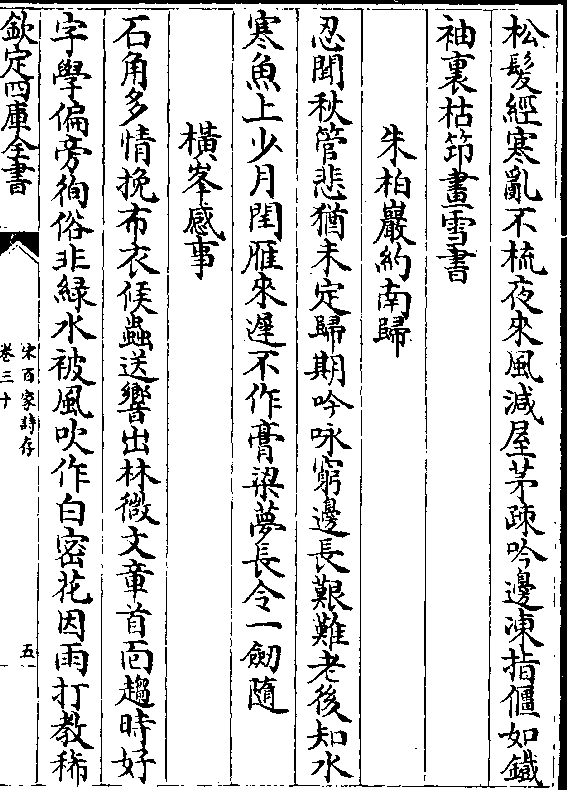 松髮經寒亂不梳夜來風減屋茅疎吟邊凍指僵如鐵
袖裏枯筇畫雪書
朱柏巖約南歸
忍聞秋管悲猶未定歸期吟咏窮邊長艱難老後知水
寒魚上少月閏雁來遲不作膏粱夢長令一劒隨
橫峯感事
石角多情挽布衣候蟲送響出林微文章首面趨時好
字學偏旁徇俗非緑水被風吹作白密花因雨打教稀
欽定四庫全書
宋百家詩存
卷三十
五